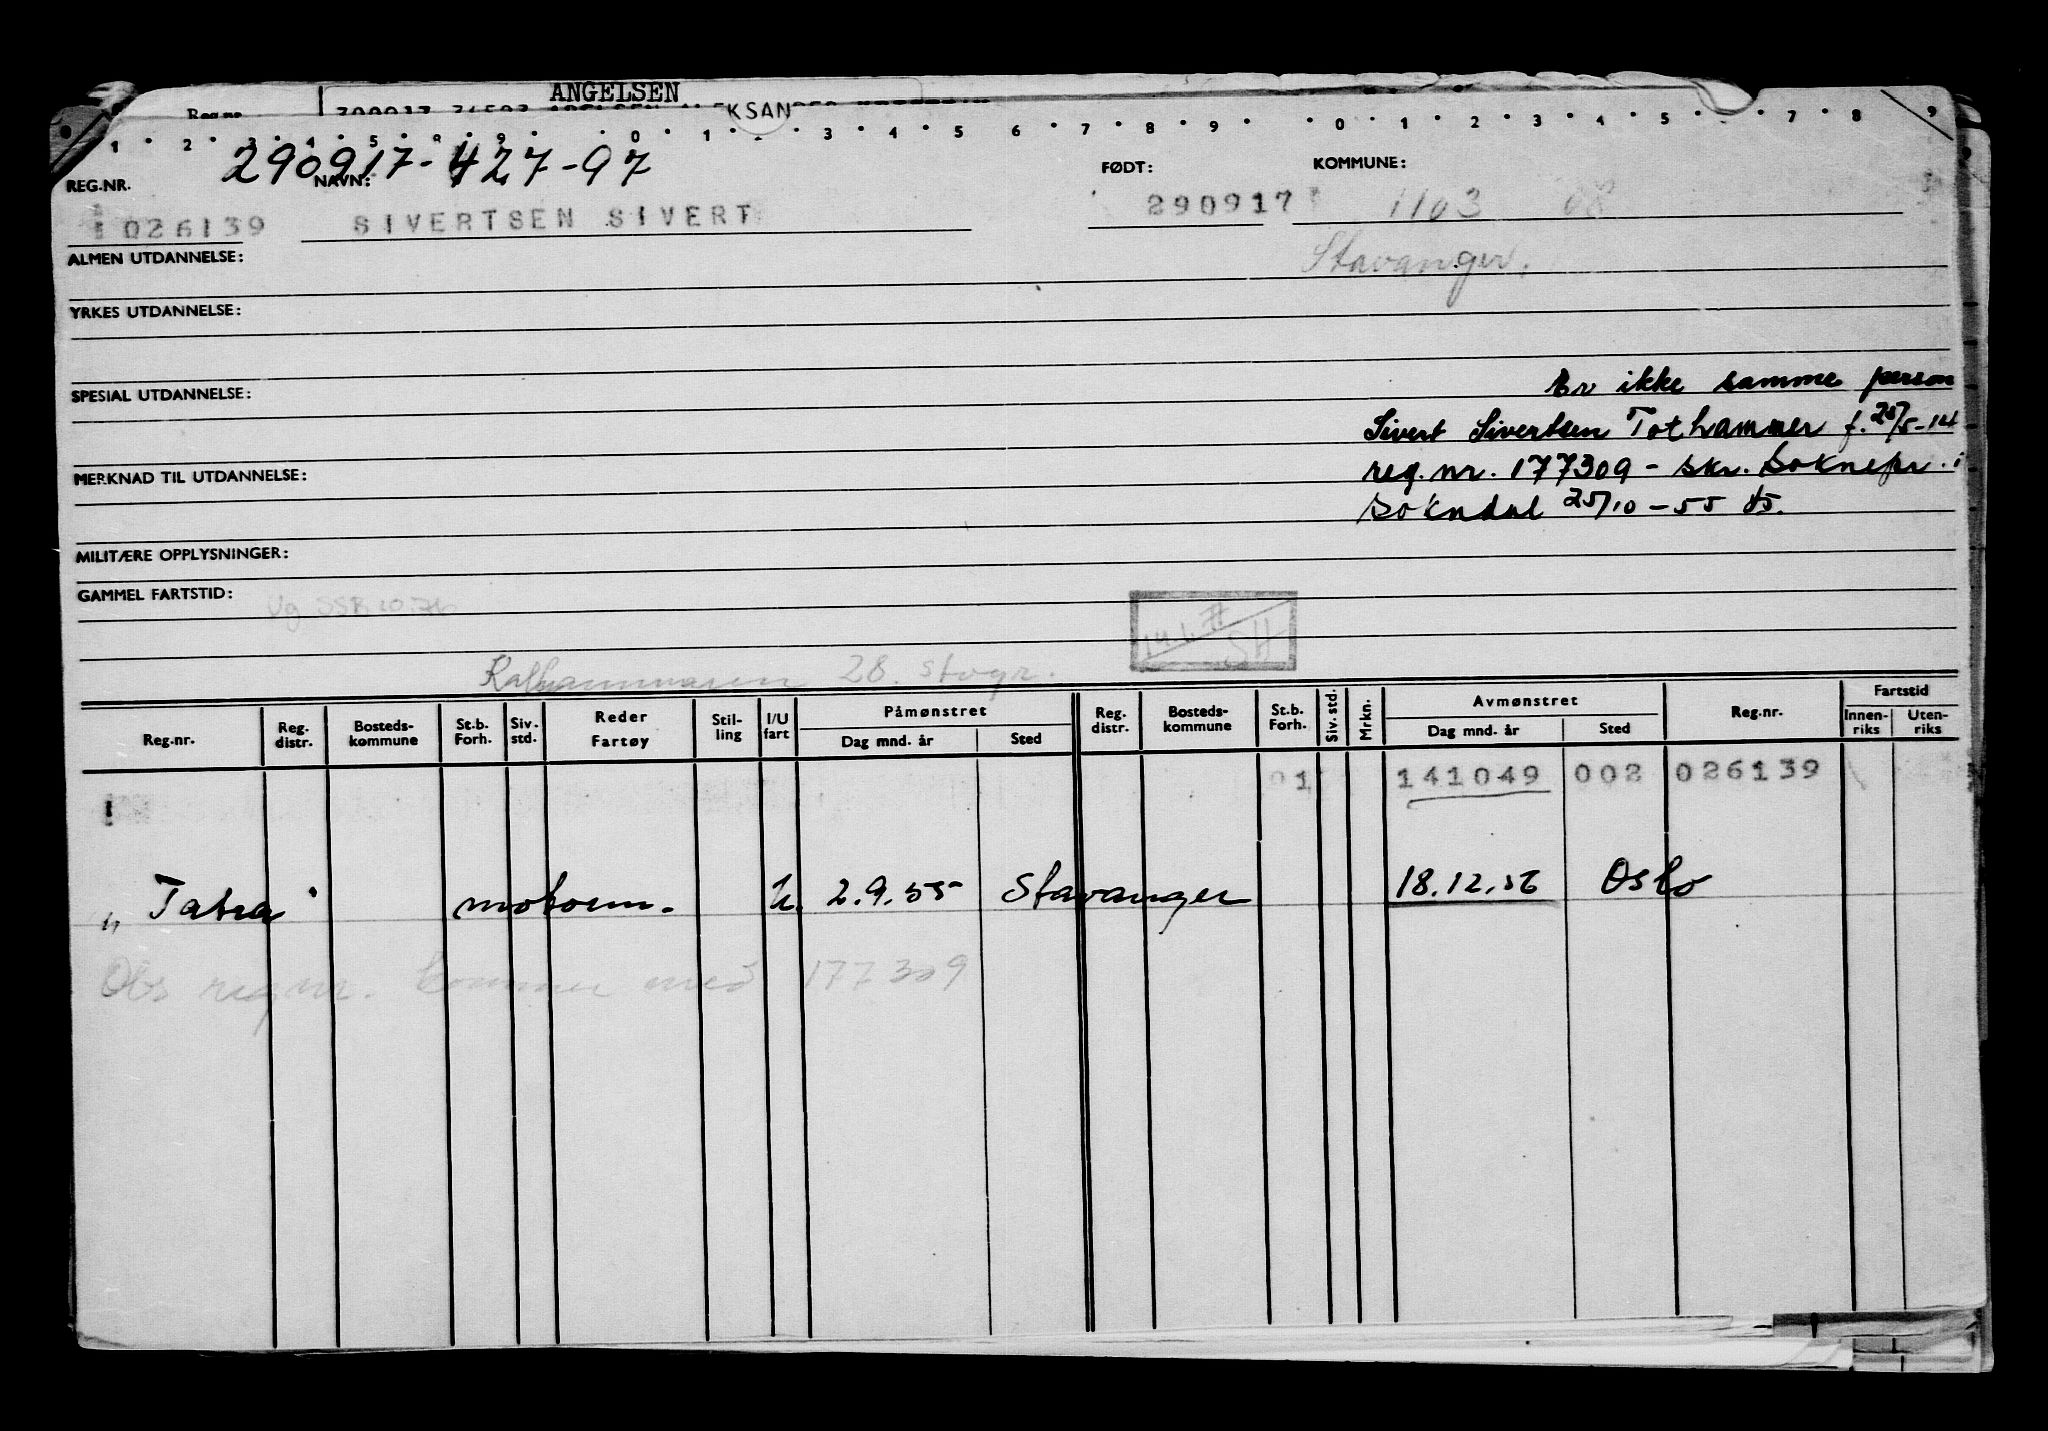 ANGELSEN
KSAN
Reg.nr.
1 2 3 4 5 9 0 1 3 4 5 6 7 8 9 0 1 2 3 4 5 7 8 9
290917-427-97
REG.NR. NAVN: FØDT: KOMMUNE:
026139 SIVERTSEN SIVERT 290917 1103 08
ALMEN UTDANNELSE: Stavanger.
YRKES UTDANNELSE:
SPESIAL UTDANNELSE: Er ikke samme person
Sivert Sivertsen Tothammer f. 25/5-14
MERKNAD TIL UTDANNELSE: reg.nr. 177309 - skr. Soknepr. i
Sokndal 25/10-55
MILITÆRE OPPLYSNINGER:
GAMMEL FARTSTID:
SH
28. Stvgr.
Reg.nr. Reg. distr. Bosteds-kommune St.b. Forh. Siv. std. Reder Fartøy Stil-ling I/U fart Påmønstret Dag mnd. år Sted Reg. distr. Bosteds-kommune St.b. Forh. Siv. std. Mrkn. Avmønstret Dag mnd. år Sted Reg.nr. Fartstid Innen-riks Uten-riks
1 141049 002 026139
"Tatra" motorm. U. 2.9.55 Stavanger 18.12.56 Oslo
Obs regnr. kommer med 177309